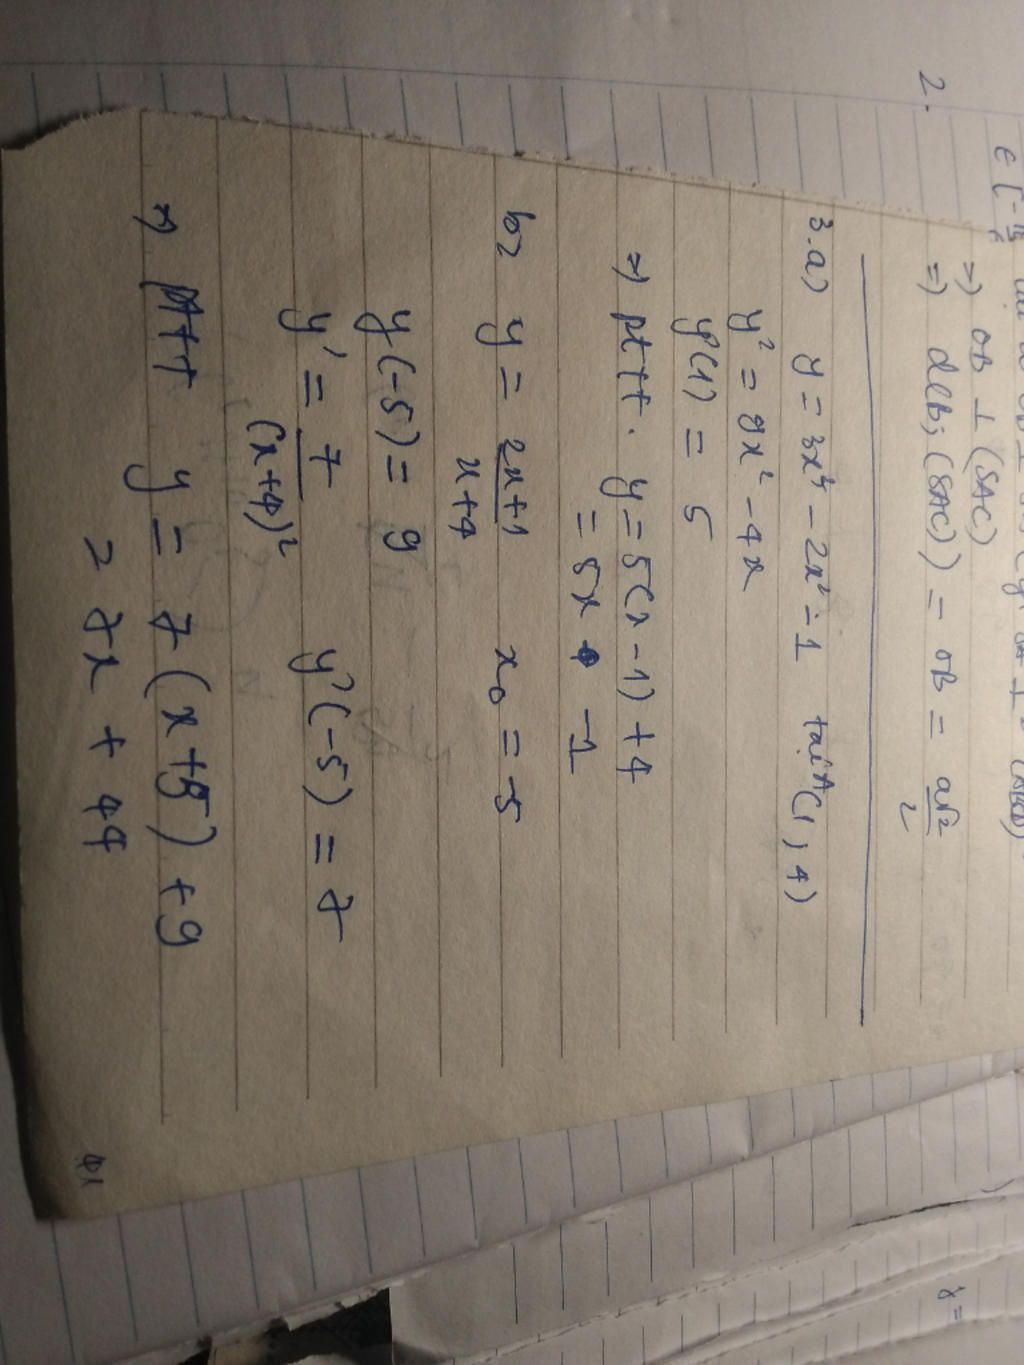 2.
⇒ OB ⊥ (SAC)
⇒ d(B;(SAC)) = OB = a√2/2
3.a) y = 3x³ - 2x² - 1 tại A(1,4)
y² = 9x² - 4x
y'(1) = 5
⇒ pttt. y = 5(x - 1) + 4
= 5x - 1
b) y = 2x+1/x+4 x₀ = -5
y(-5) = 9
y' = 7/(x+4)² y'(-5) = 7
⇒ pttt y = 7(x+5) + 9
= 7x + 44